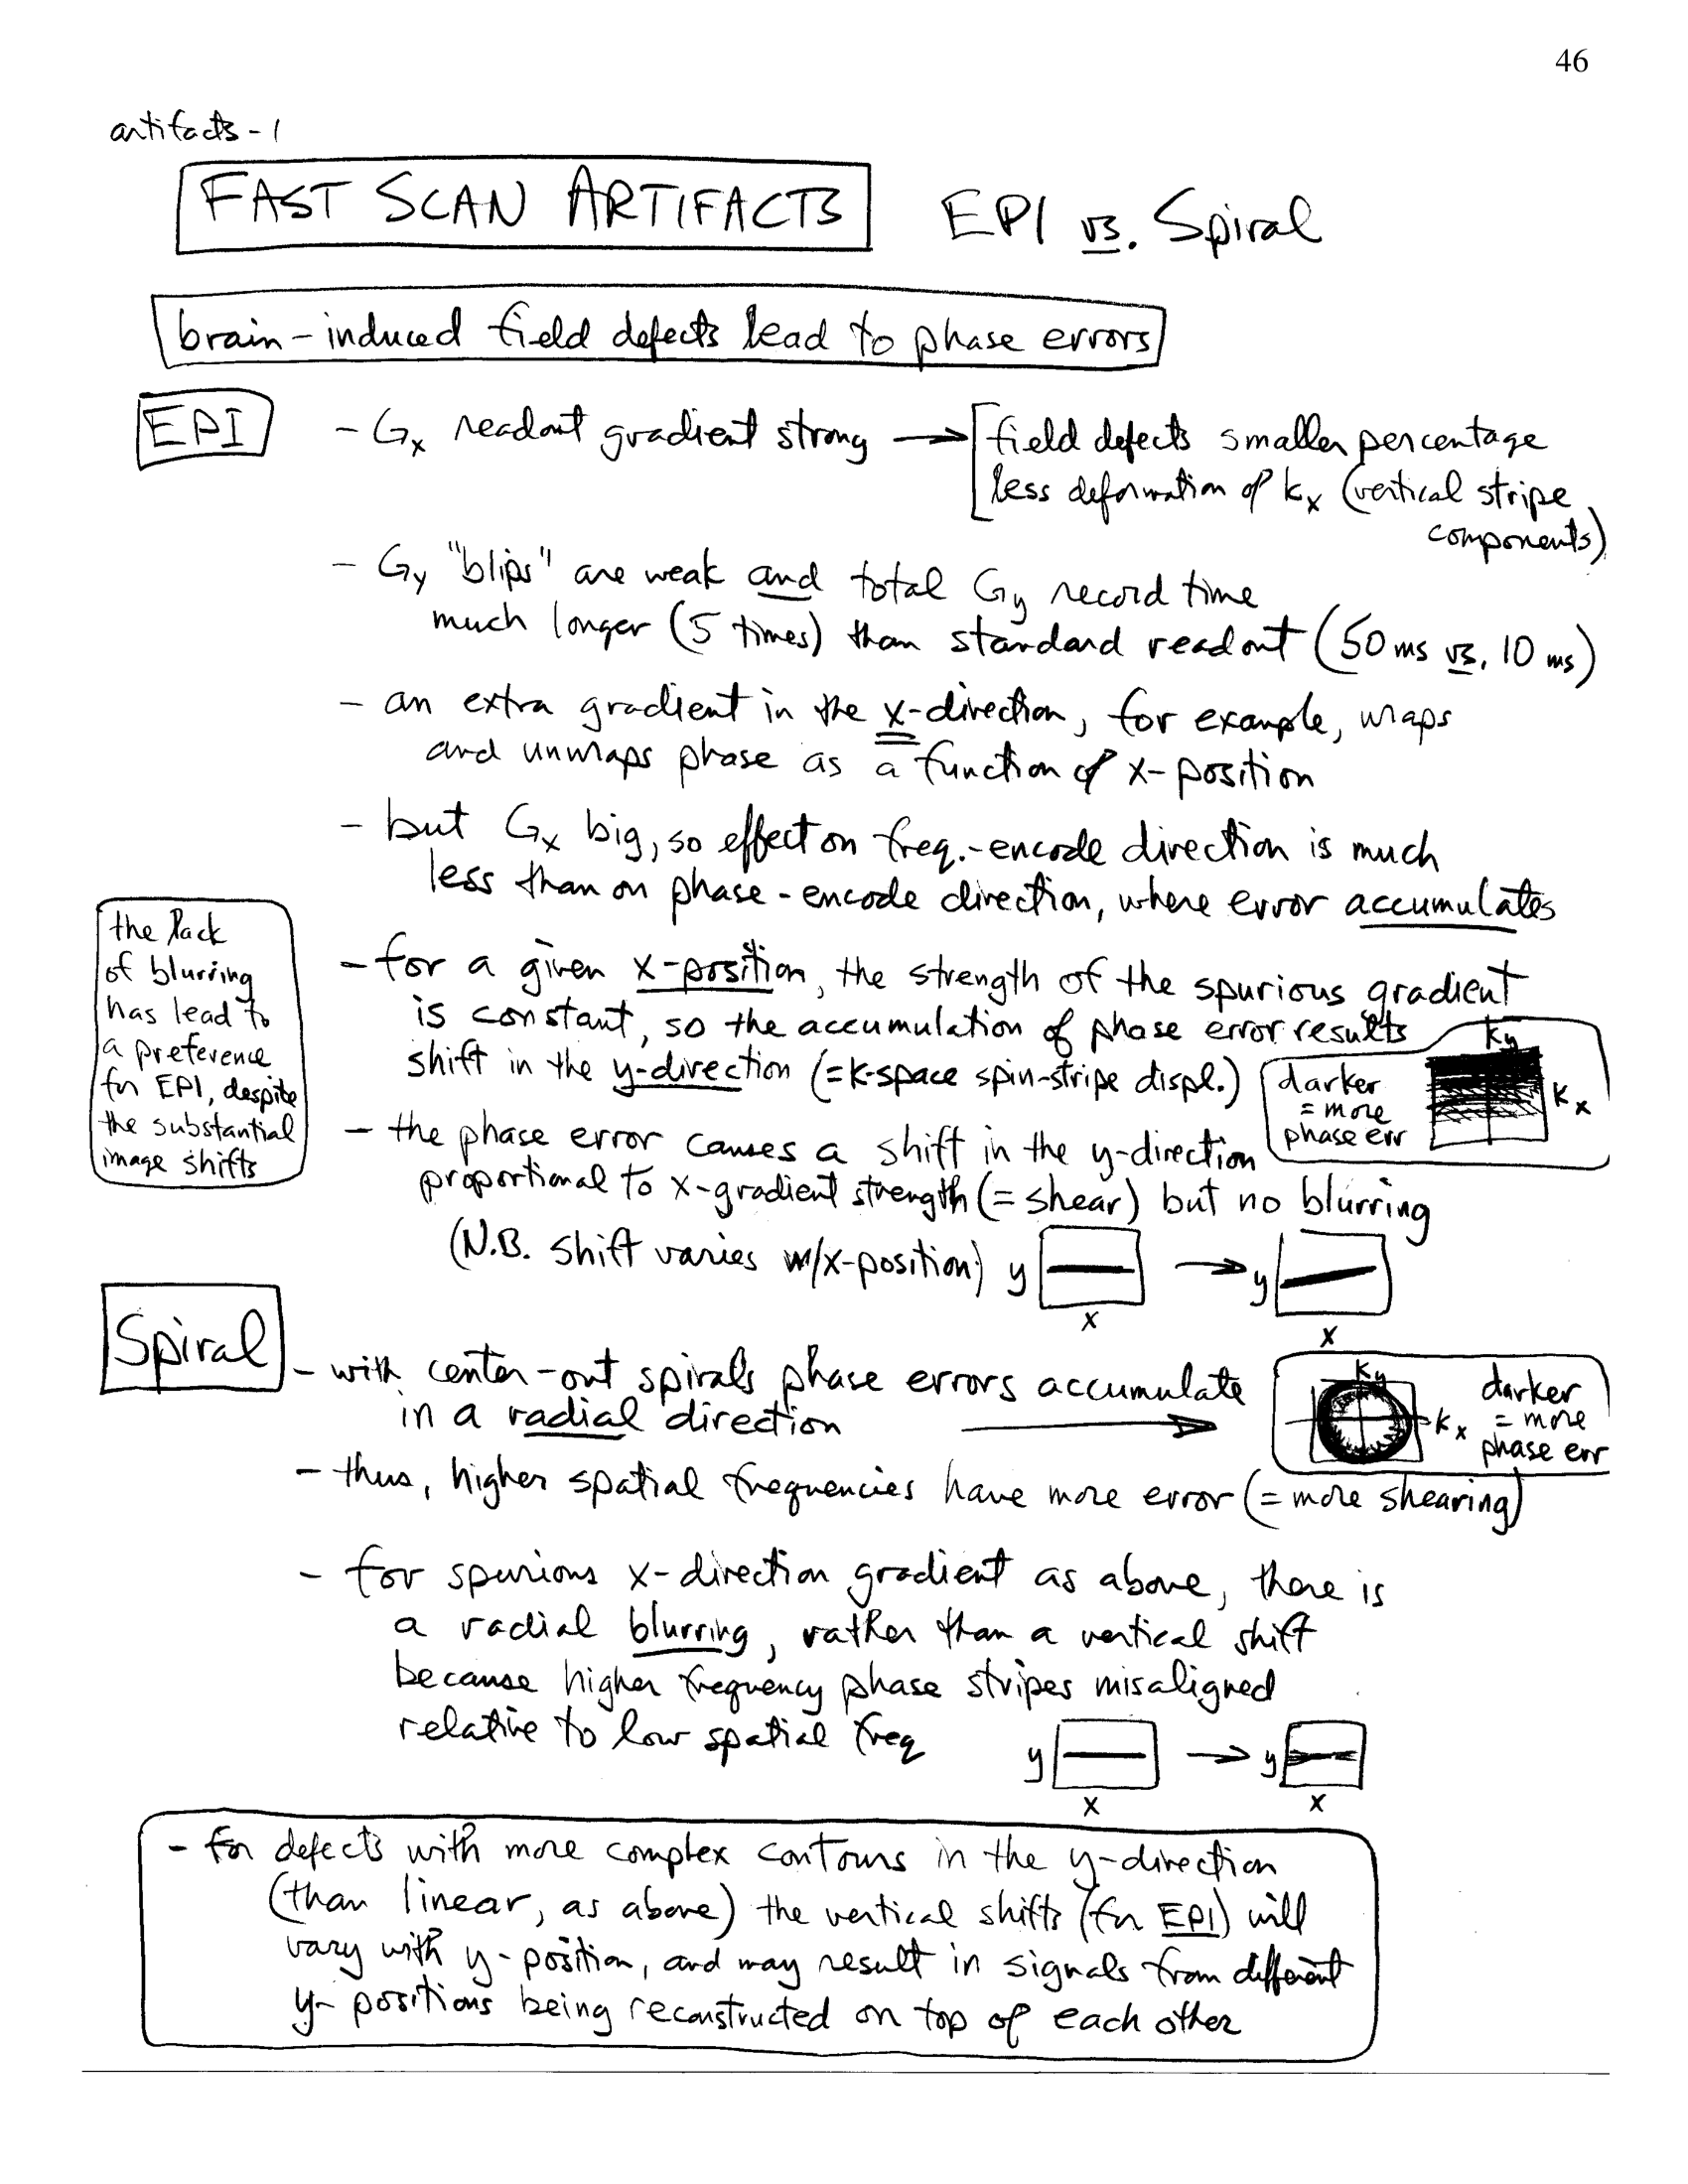 46
artifacts-1
FAST SCAN ARTIFACTS EPI vs. Spiral
brain-induced field defects lead to phase errors
EPI
- Gx readout gradient strong → field defects smaller percentage
less deformation of kx (vertical stripe
components)
- Gy "blips" are weak and total Gy record time
much longer (5 times) than standard readout (50 ms vs. 10 ms)
- an extra gradient in the x-direction, for example, wraps
and unwraps phase as a function of x-position
- but Gx big, so effect on freq.-encode direction is much
less than on phase-encode direction, where error accumulates
the lack
of blurring
has lead to
a preference
for EPI, despite
the substantial
image shifts
- for a given x-position, the strength of the spurious gradient
is constant, so the accumulation of phase error results
shift in the y-direction (=k-space spin-stripe displ.)
darker
= more
phase err
ky
kx
- the phase error causes a shift in the y-direction
proportional to x-gradient strength (= shear) but no blurring
(N.B. shift varies w/x-position) y → y
x x
Spiral
- with center-out spirals phase errors accumulate
in a radial direction →
ky
kx
darker
= more
phase err
- thus, higher spatial frequencies have more error (= more shearing)
- for spurious x-direction gradient as above, there is
a radial blurring, rather than a vertical shift
because higher frequency phase stripes misaligned
relative to low spatial freq
y → y
x x
- for defects with more complex contours in the y-direction
(than linear, as above) the vertical shifts (for EPI) will
vary with y-position, and may result in signals from different
y-positions being reconstructed on top of each other